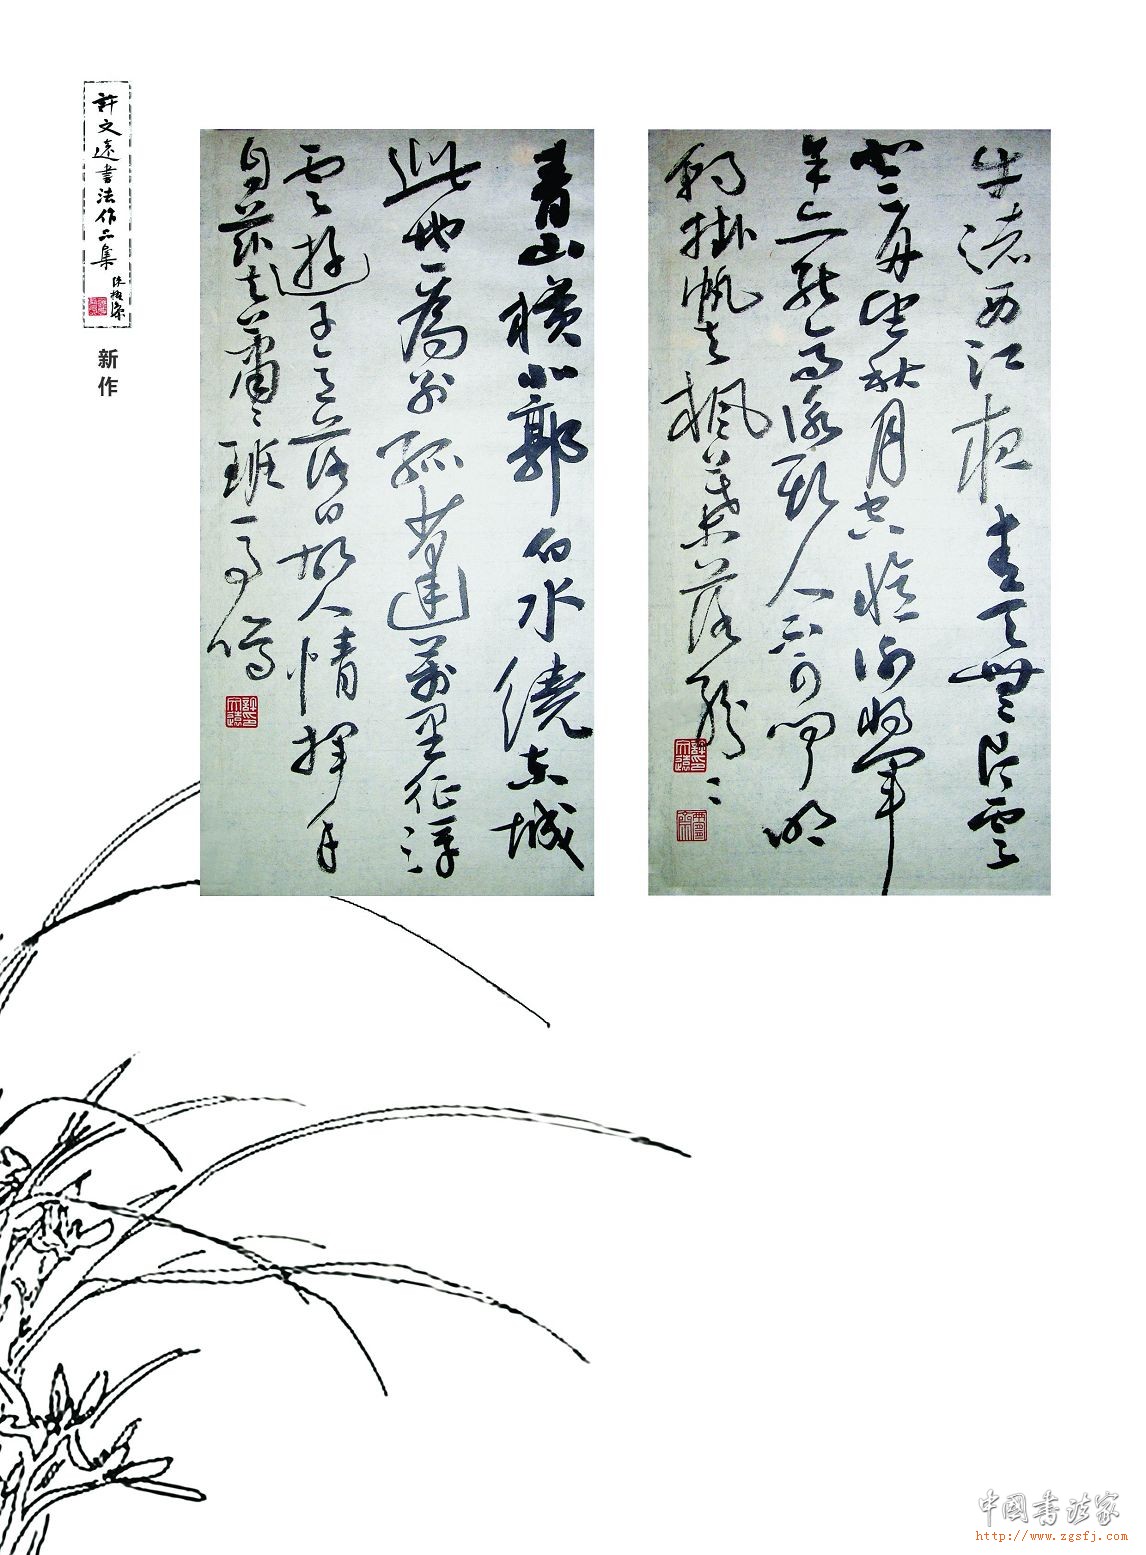 牛渚西江夜青天無片雲
登舟望秋月空憶謝將軍
余亦能高詠斯人不可聞明
朝掛帆去楓葉落紛〻
青山橫北郭白水繞東城
此地一為別孤蓬萬里征浮
雲遊子意落日故人情揮手
自茲去蕭〻班馬鳴
許文遠書法作品集
新作
中國书法家
http://www.zgsfj.com